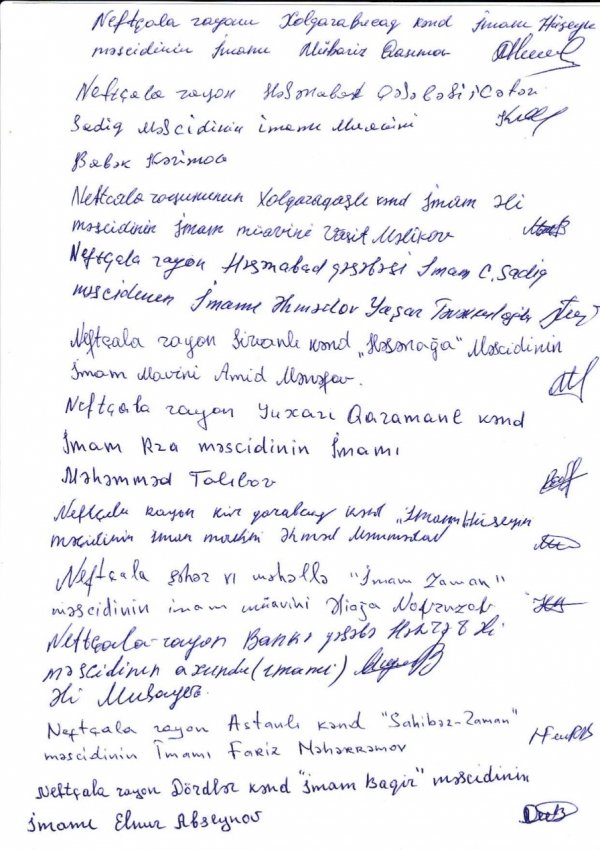 Neftçala rayonu Xolqarabucaq kənd İmam Hüseyn
məscidinin İmamı Mübariz Qasımov
Neftçala rayon Həsənabad Qəsəbəsi, Cəfəri
Sadiq Məscidinin imamı Muavini
Babək Kərimov
Neftçala rayonunun Xolqaraqaşlı kənd İmam Əli
məscidinin İmam müavini Vasif Məlikov
Neftçala rayon Həsənabad qəsəbəsi İmam C. Sadiq
məscidinin İmamı Əhmədov Yaşar
Neftçala rayon Şirvanlı kənd „Həsənağa" Məscidinin
İmam Mavini Amid Mənəfov.
Neftçala rayon Yuxarı Qaramanlı kənd
İmam Rza məscidinin İmamı
Məhəmməd Talıbov
Neftçala rayon Kür qarabucaq kənd „İmam Hüseyn
məscidinin imam Əhməd Məmmədov
Neftçala şəhər VI məhəllə "İmam Zaman"
məscidinin imam müavini Novruzov
Neftçala rayon Bankə qəsəbə Həzrəti Əli
məscidinin axundu (imamı)
Əli Musayev.
Neftçala rayon Astanlı kənd "Sahibəz-Zaman"
məscidinin İmamı Fariz Məhərrəmov
Neftçala rayon Dördlər kənd "İmam Baqir" məscidinin
İmamı Elnur Abseynov